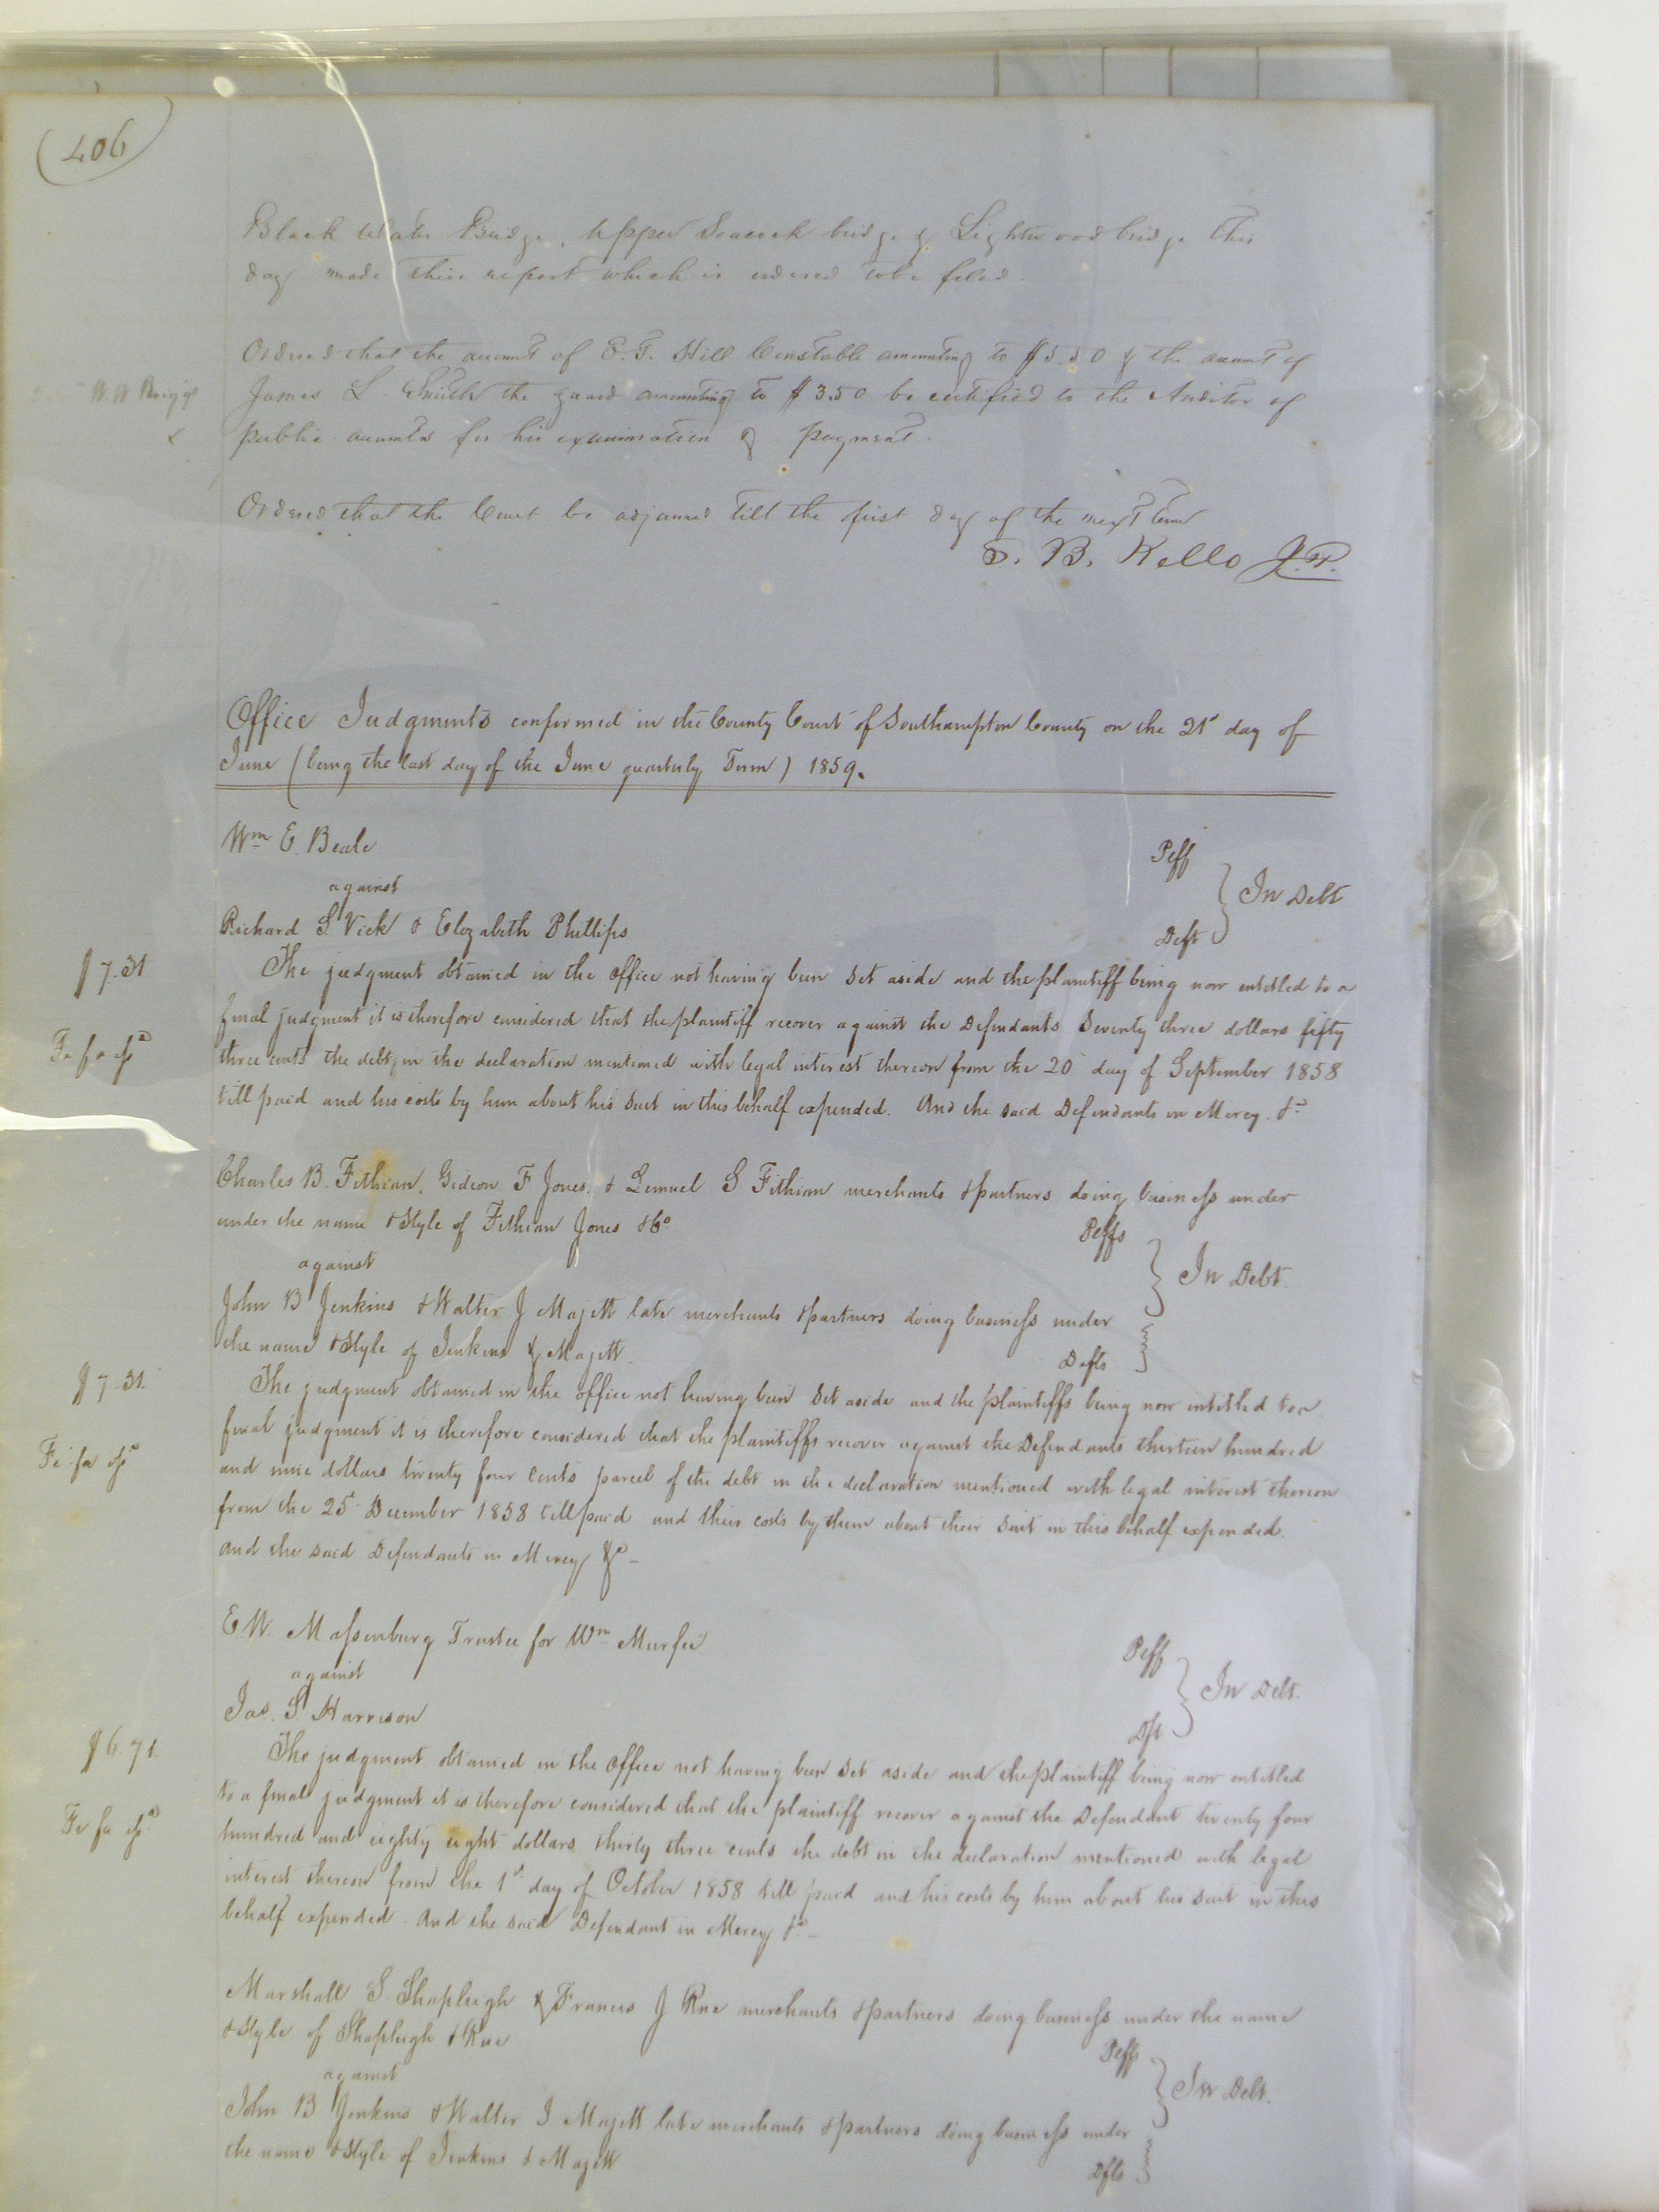 (406)
Black Water Bridge, Upper Seacock bridge & Lightwood bridge this
day made their report which is ordered to be filed.
Ordered that the account of E. T. Hill Constable amounting to $5.50 & the account of
W. W. Briggs
James L. Smith the guard amounting to $3.50 be certified to the Auditor of
x
public accounts for his examination & payment.
Ordered that the Court be adjourned till the first day of the next term
B. Kello J.P.
Office Judgments confirmed in the County Court of Southampton County on the 21st day of
June (being the last day of the June quarterly Term) 1859.
Wm E. Beale
Plff
against
In Debt
Richard S. Vick & Elizabeth Phillips
Deft
$7.31
The judgment obtained in the office not having been set aside and the plaintiff being now entitled to a
final judgment it is therefore considered that the plaintiff recover against the Defendants Seventy three dollars fifty
Fi fa
three cents the debt in the declaration mentioned with legal interest thereon from the 20 day of September 1858
till paid and his costs by him about his suit in this behalf expended. And the said Defendants in Mercy &c
Charles B. Fithian, Gideon F Jones, & Lemuel S Fithian merchants & partners doing business under
under the name & Style of Fithian Jones & Co
Plffs
against
In Debt.
John B Jenkins & Walter J Majett late merchants & partners doing business under
the name & Style of Jenkins & Majett.
Defts
$7.31.
The judgment obtained in the office not having been set aside and the plaintiffs being now entitled to a
final judgment it is therefore considered that the plaintiffs recover against the Defendants thirteen hundred
Fi fa
and nine dollars twenty four cents parcel of the debt in the declaration mentioned with legal interest thereon
from the 25 December 1858 till paid and their costs by them about their suit in this behalf expended.
And the said Defendants in Mercy &c —
E. W. Massenburg Trustee for Wm Murfee
Plff
against
In Debt.
Jas. S. Harrison
Dft
$6.71.
The judgment obtained in the office not having been set aside and the plaintiff being now entitled
to a final judgment it is therefore considered that the plaintiff recover against the Defendant twenty four
Fi fa
hundred and eighty eight dollars thirty three cents the debt in the declaration mentioned with legal
interest thereon from the 1st day of October 1858 till paid and his costs by him about his suit in this
behalf expended. And the said Defendant in Mercy &c —
Marshall S. Shapleigh & Francis J Rue merchants & partners doing business under the name
& Style of Shapleigh & Rue
Plffs
against
In Debt.
John B Jenkins & Walter J Majett late merchants & partners doing business under
the name & Style of Jenkins & Majett
Dfts